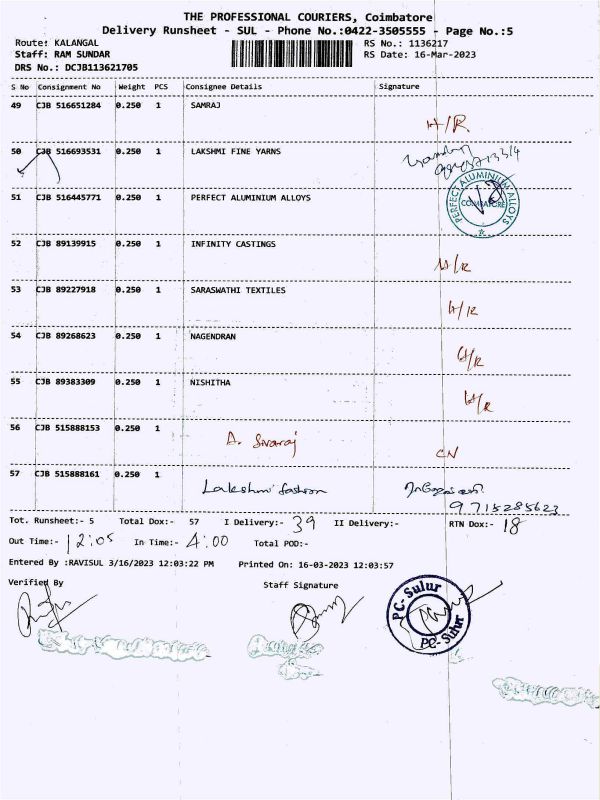 THE PROFESSIONAL COURIERS, Coimbatore
Delivery Runsheet - SUL - Phone No.:0422-3505555 - Page No.:5
Route: KALANGAL
RS No.: 1136217
Staff: RAM SUNDAR
RS Date: 16-Mar-2023
DRS No.: DCJB113621705
S No Consignment No Weight PCS Consignee Details Signature
49 CJB 516651284 0.250 1 SAMRAJ
H/R
50 CJB 516693531 0.250 1 LAKSHMI FINE YARNS
51 CJB 516445771 0.250 1 PERFECT ALUMINIUM ALLOYS
PERFECT ALUMINIUM ALLOYS
COIMBATORE
52 CJB 89139915 0.250 1 INFINITY CASTINGS
H/R
53 CJB 89227918 0.250 1 SARASWATHI TEXTILES
H/R
54 CJB 89268623 0.250 1 NAGENDRAN
H/R
55 CJB 89383309 0.250 1 NISHITHA
H/R
56 CJB 515888153 0.250 1
A. Sivaraj CN
57 CJB 515888161 0.250 1
Lakshmi fashion
9715285623
Tot. Runsheet:- 5 Total Dox:- 57 I Delivery:- 39 II Delivery:- RTN Dox:- 18
Out Time:- 12:05 In Time:- 4:00 Total POD:-
Entered By :RAVISUL 3/16/2023 12:03:22 PM Printed On: 16-03-2023 12:03:57
Verified By Staff Signature
PC-Sulur
PC-Sulur